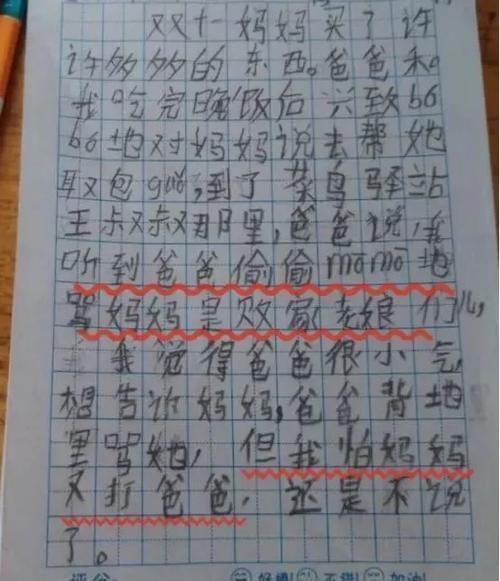 双十一妈妈买了许
许多多的东西。爸爸和
我吃完晚饭后兴致bó
bó地对妈妈说去帮她
取包guǒ,到了菜鸟驿站
王叔叔那里,爸爸说,我
听到爸爸偷偷mōmō地
骂妈妈是败家老娘们儿,
我觉得爸爸很小气,
想告诉妈妈,爸爸背地
里骂她,但我怕妈妈
又打爸爸,还是不说
了。